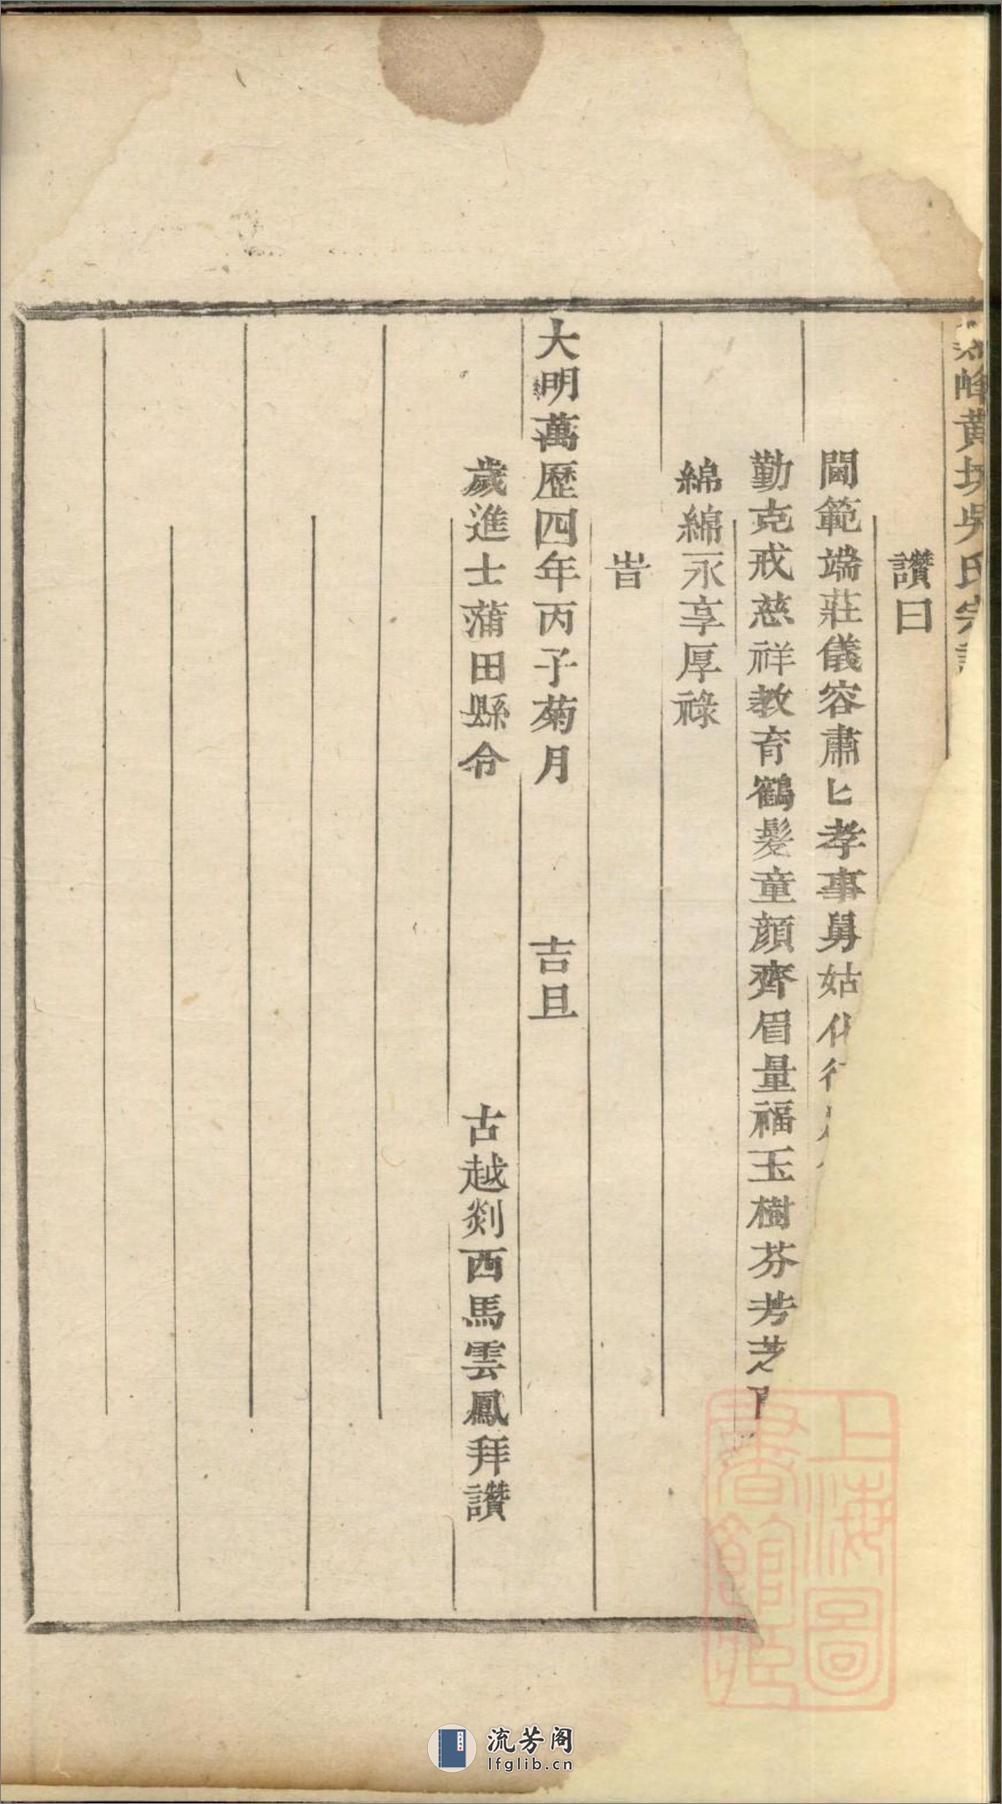 峰黄坊吳氏宗譜
讚曰
閫範端莊儀容肅匕孝事舅姑
勤克戒慈祥教育鶴髮童顔齊眉量福玉樹芬芳芝
綿綿永享厚祿
旹
大明萬歷四年丙子菊月 吉旦
歲進士蒲田縣令 古越剡西馬雲鳳拜讚
上海圖書館藏
流芳阁
lfglib.cn